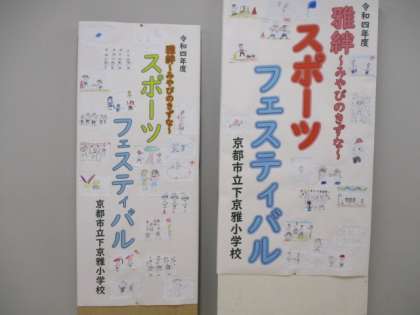 令和四年度
雅絆～みやびのきずな～
スポーツ
フェスティバル
京都市立下京雅小学校
令和四年度
雅絆～みやびのきずな～
スポーツ
フェスティバル
京都市立下京雅小学校